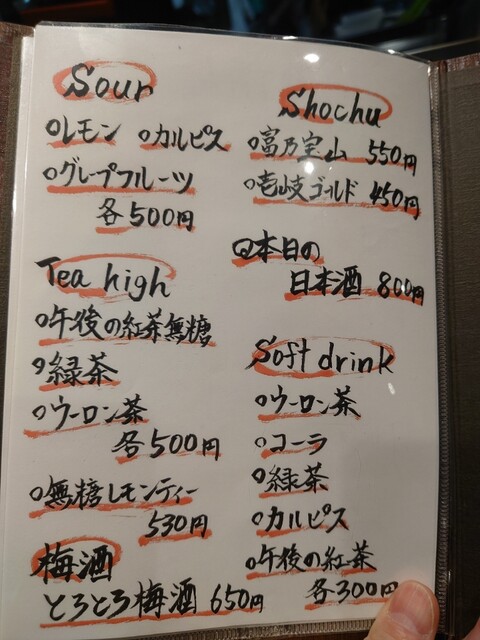 Sour
レモン カルピス
グレープフルーツ
各500円
Tea high
午後の紅茶無糖
緑茶
ウーロン茶
各500円
無糖レモンティー
530円
梅酒
とろとろ梅酒 650円
Shochu
富乃宝山 550円
壱岐ゴールド 450円
本日の
日本酒 800円
Soft drink
ウーロン茶
コーラ
緑茶
カルピス
午後の紅茶
各300円